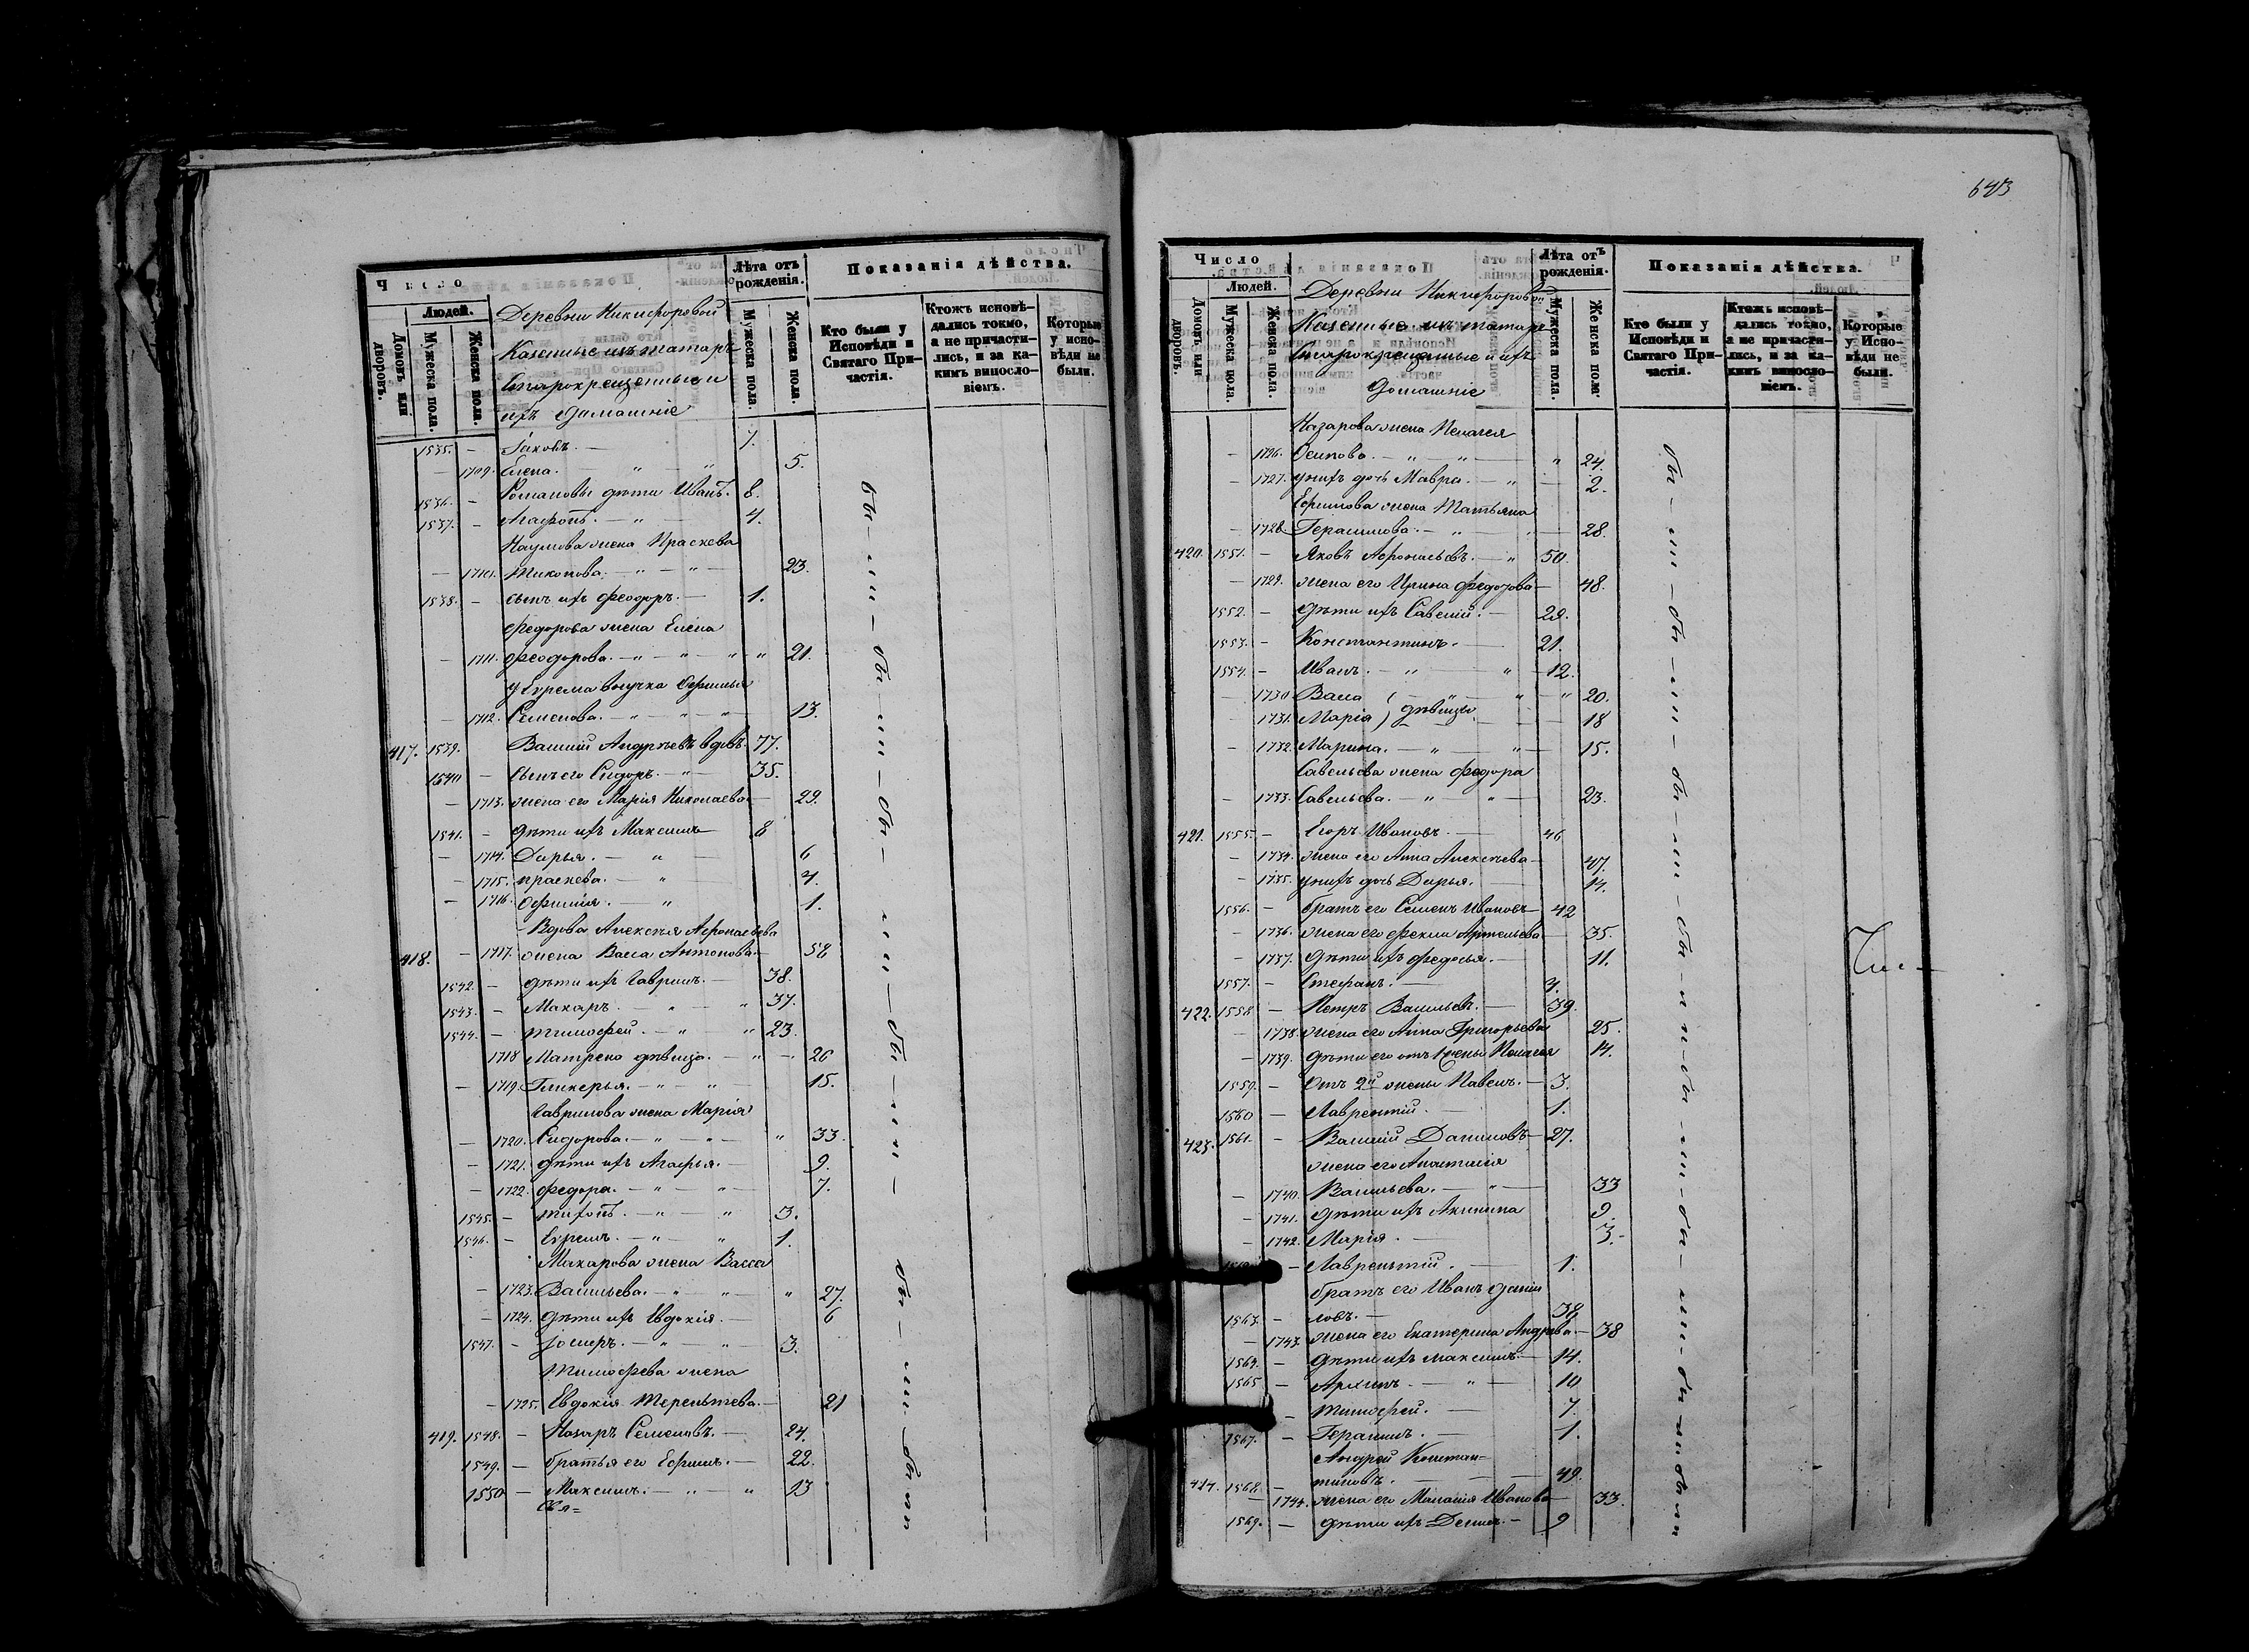 643
Число
Людей.
Домовъ или дворовъ.
Мужеска пола.
Женска пола.
Деревни Никифоровой
Казенные изъ татаръ
Старокрещенные и
ихъ домашніе
Лѣта отъ рожденія.
Мужеска пола.
Женска пола.
Показанія дѣйства.
Кто были у Исповѣди и Святаго Причастія.
Ктожъ исповѣдались токмо, а не причастились, и за какимъ винословіемъ.
Которые у исповѣди не были.
1535. — Іаковъ. — 7.
— 1709. Елена. — " — " 5.
1536. — Романовы дѣти Иванъ. 8.
1537. — Агафонъ. — " — 4.
Наумова жена Праскева
— 1710. Тихонова. — " — " — 23.
1538. — сынъ ихъ Феодоръ. — 1.
Федорова жена Елена
— 1711. Феодорова. — " — " — " — " 21.
у Ефрема внучка Офимья
— 1712. Семенова. — " — " — " 13.
417. 1539. Василій Андреевъ вдовъ. 77.
1540 — Сынъ его Сидоръ. — " — 35.
— 1713. жена его Марія Николаева — 29.
1541. — дѣти ихъ Максимъ 8
— 1714. Дарья. — " — 6
— 1715. праскева. — " — 4.
— 1716. Офимія. — " 1.
Вдова Алексѣя Афонасьева
418. — 1717. жена Васса Антонова. — 58
1542. — дѣти ихъ Гаврилъ. — 38.
1543. — Макаръ. — " — " 37.
1544. — тимофей. — " — " 23.
1718 Матрена дѣвица. — " — 26
— 1719. Гликерья. — " — " — 15.
Гаврилова жена Марія
— 1720. Сидорова. — " — " — " 33.
— 1721. дѣти ихъ Агафья. — 9.
— 1722. федора. — " — " — 7.
1545. — тихонъ. — " — " 3.
1546. — Ефремъ. — " — " 1.
Макарова жена Васса
— 1723. Васильева. — " — " — " 27.
— 1724. дѣти ихъ Евдокія. — 6
1547. — — " — " — 3.
Тимофеева жена
— 1725. Евдокія Терентьева. — 21
419. 1548. — Назаръ Семеновъ. — 24.
1549. — братья его Ефимъ. — 22.
1550 — Максимъ. — " — " 13
бы — ли — бы — ли — бы — ли — бы — ли — бы — ли — были
Число
Людей.
Домовъ или дворовъ.
Мужеска пола.
Женска пола.
Деревни Никифоровой
Казенные изъ татаръ
Старокрещенные и ихъ
домашніе
Лѣта отъ рожденія.
Мужеска пола.
Женска пола.
Показанія дѣйства.
Кто были у Исповѣди и Святаго Причастія.
Ктожъ исповѣдались токмо, а не причастились, и за какимъ винословіемъ.
Которые у Исповѣди не были.
Назарова жена Пелагея
— 1726. Осипова. — " — " — " 24.
— 1727. у нихъ дочь Мавра. — " — 2.
Ефимова жена Татьяна
— 1728. Герасимова. — " — " — 28.
420. 1551. — Яковъ Афонасьевъ. — " 50.
— 1729. жена его Ирина Федотова — 48.
1552. — дѣти ихъ Савелій. — 29.
1553. — Константинъ. — 21.
1554. — Иванъ. — " — " — 12.
— 1730. Васса — " — " — " 20.
1731. Марія } дѣвицы — 18
— 1732. Марина. — " — " — 15.
Савельева жена Федора
— 1733. Савельева. — " — " — 23.
421. 1555. — Егоръ Ивановъ. — 46
— 1734. жена его Анна Алексѣева — 47.
— 1735. у нихъ дочь Дарья. — 14.
1556. — братъ его Семенъ Ивановъ — 42
— 1736. жена его фекла — 35.
— 1737. дѣти ихъ федосья. — 11.
1557. — Стефанъ. — 3.
422. 1558. — Петръ Васильевъ. — 39.
— 1738. жена его Анна Григорьева 25.
— 1739. дѣти его отъ 1 жены Пелагея 14.
1559. — Отъ 2й жены Павелъ. — 3.
1560 — Лаврентій. — 1.
423. 1561. — Василій Даниловъ — 27.
жена его Анастасія
— 1740. Васильева. — " — 33
— 1741. дѣти ихъ Акилина 9
— 1742. Марія. — 3.
— Лаврентій. — 1.
братъ его Иванъ Дани
1563. — ловъ. — 38
— 1743. жена его Екатерина Андрева — 38
1564. — дѣти ихъ максимъ — 14.
1565 — Архипъ. — " — 10
— тимофей. — 7.
1567. — Герасимъ. — 1.
Андрей Констан=
424. 1568. — тиновъ. — 49.
— 1744. жена его Маланія Иванова — 33.
1569. — дѣти ихъ Денисъ. — 9
бы — ли — бы — ли — бы — ли — бы — ли — бы — ли — бы — ли — были